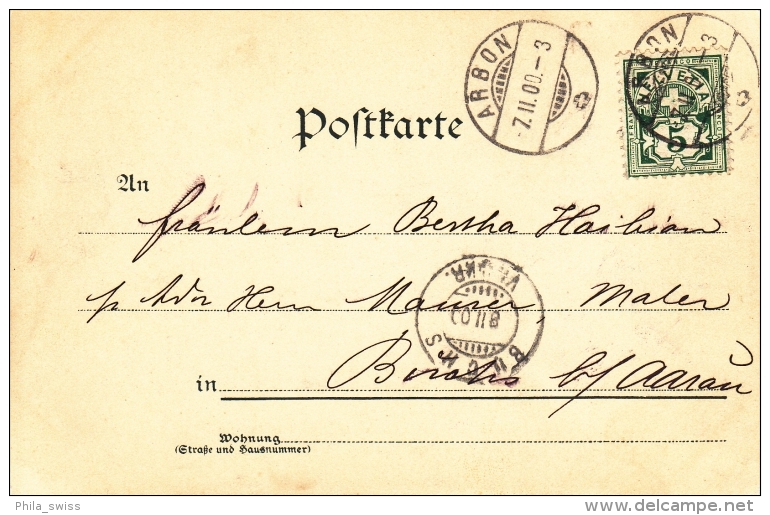 ARBON
-7.11.00.-3
ARBON
-3
HELVETIA
5
Postkarte
An
Fräulein Bertha
p. Adr Herrn Maurer, Maler
BUCHS
8 II 00
in Buchs b/Aarau
Wohnung
(Straße und Hausnummer)
Phila_swiss
delcampe.net